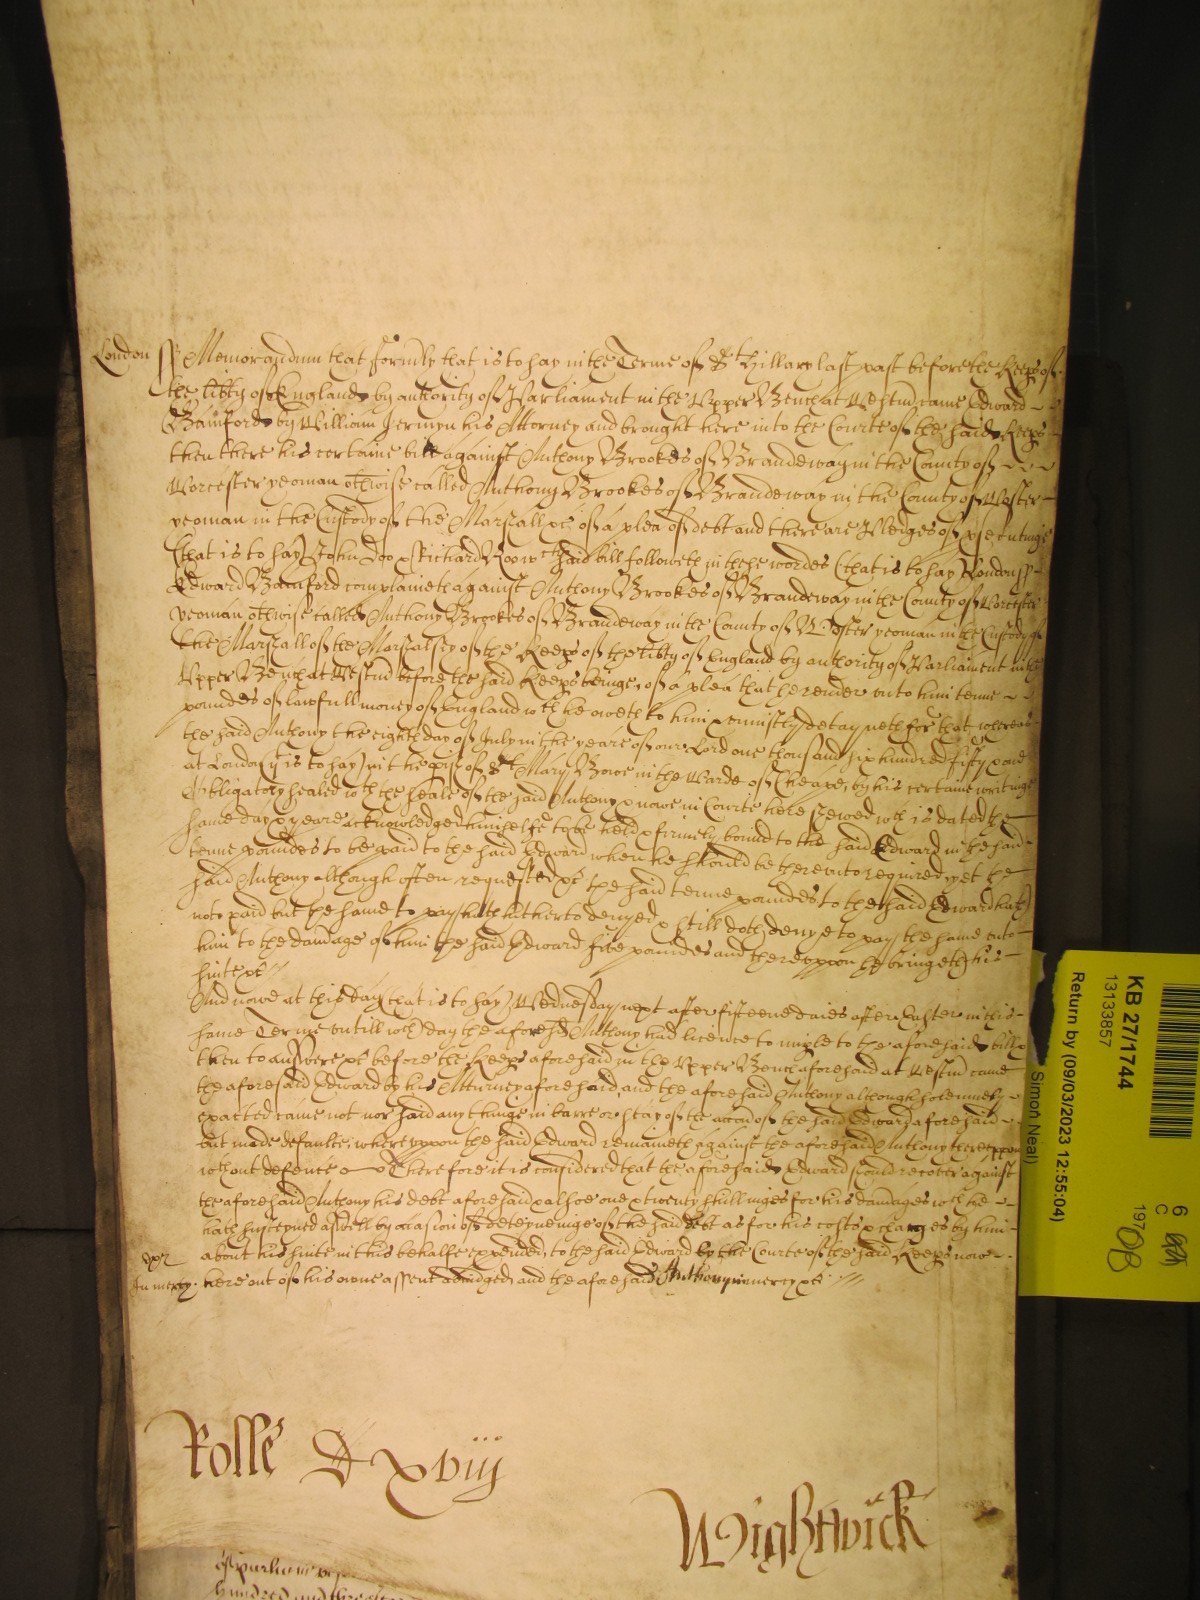 London ss Memorandum that formly that is to say in the Terme of St Hillary last past before the Keeps of
the libty of England by authority of Parliament in the Upper Bench at Westm came Edward
Bamford by William Jermyn his Attorney and brought here into the Courte of the said Keeps
then there his certaine bill against Anthony Brookes of Brandeway in the County of
Worcester yeoman othwise called Anthony Brookes of Brandeway in the County of Woster
yeoman in the Custody of the Marshall &c of a plea of debt and there are Pledges of psecutinge
(that is to say) John Doo & Richard Roo wch said bill followeth in these wordes (that is to say) London ss
Edward Bamford complaineth against Anthony Brookes of Brandeway in the County of Worcester
yeoman othwise called Anthony Brookes of Brandeway in the County of Woster yeoman in the Custody of
the Marshall of the Marshalsey of the Keeps of the libty of England by authority of Parliament in the
Upper Bench at Westm before the said Keeps beinge, of a plea that he render unto him tenne
poundes of lawfull money of England wch he oweth to him & uniustly detayneth for that whereas
the said Anthony the eight day of July in the yeare of our Lord one thousand six hundred fifty & one
at London (that is to say) in the pish of St Mary Bowe in the Warde of Cheape, by his certaine writinge
Obligatory sealed wth the seale of the said Anthony & nowe in Courte here shewed wch is dated the
same day & yeare acknowledged himselfe to be held & firmely bound to the said Edward in the said
tenne poundes to be paid to the said Edward when he should be thereunto required, yet the
said Anthony although often requested &c the said tenne poundes to the said Edward hath
not paid but the same to pay hath hitherto denyed & still doth denye to pay the same unto
him to the damage of him the said Edward five poundes and thereuppon he bringeth his
suite &c
And nowe at this day (that is to say) Wednesday next after fifteene daies after Easter in this
same Terme untill wch day the aforesd Anthony had licence to imple to the aforesaid bill &
then to answere &c before the Keeps aforesaid in the Upper Bench aforesaid at Westm came
the aforesaid Edward by his Atturney aforesaid, and the aforesaid Anthony although solemnely
exacted came not nor said any thinge in barre or stay of the accon of the said Edward aforesaid
but made defaulte, whereuppon the said Edward remaineth against the aforesaid Anthony thereuppon
wthout defence Therefore it is considered that the aforesaid Edward should recover against
the aforesaid Anthony his debt aforesaid & alsoe one & twenty shillinges for his damages wch he
hath susteyned aswell by occasion of deteyneinge of the said debt as for his costs & charges by him
about his suite in this behalfe expended, to the said Edward by the Courte of the said Keeps nowe
In mercy. here out of his owne assent adiudged, and the aforesaid Anthony in mercy &c
Rolle D xviij
Wightwick
KB 27/1744
13133857
Return by (09/03/2023 12:55:04)
Simon Neal)
6
C
197
hundred and